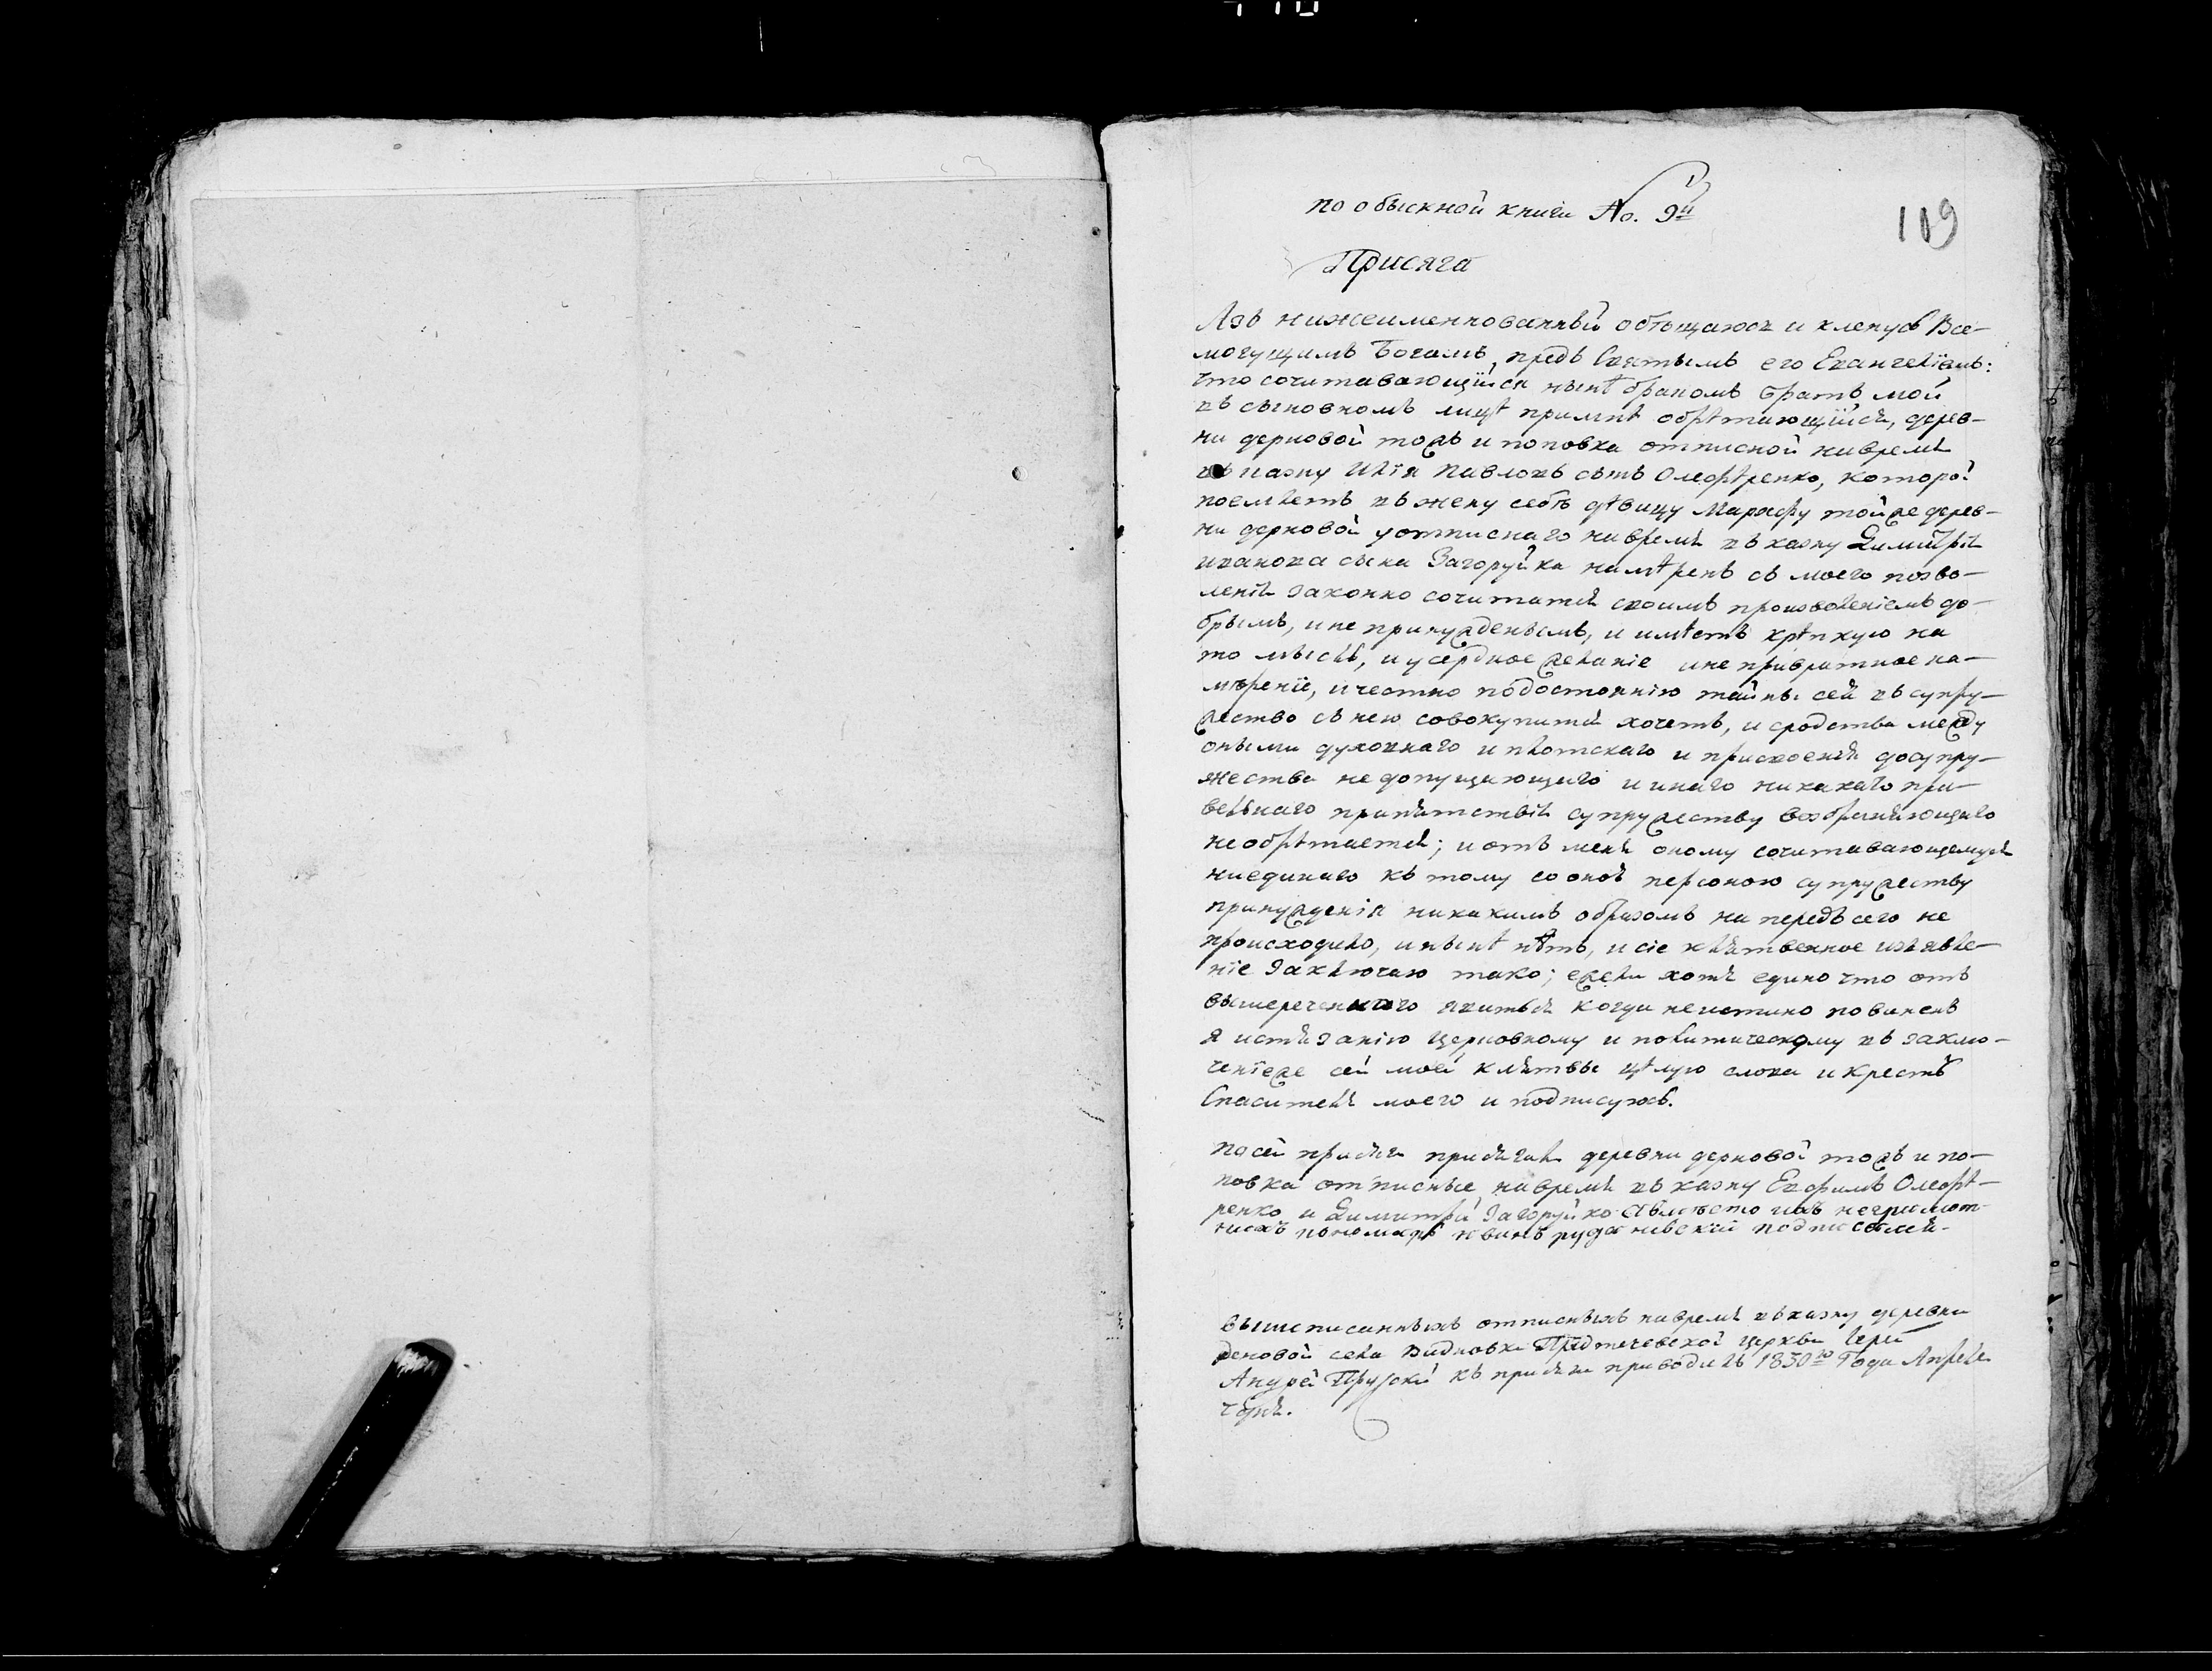 по обыскной книги No. 9й
109
Присяга
Азъ нижеименнованный обѣщаюся и кленусь Все-
могущимъ Богомъ, предъ Святымъ его Евангелїемъ:
что сочитавающїйся нынѣ бракомъ братъ мой
въ сыновномъ лицѣ при мнѣ обрѣтающїйся, дерев-
ни дерновой тожъ и поповка отписной навремя
въ казну Илїя Павловъ сынъ Олефѣренко, которой
поемлетъ въ жену себѣ дѣвицу Марѳу тойже дерев-
ни дерновой у отписнаго навремя въ казну Димитрїя
иванова сына Загоруйка намѣренъ съ моего позво-
ленїя законно сочитатися своимъ произволенїемъ до-
брымъ, и не принужденнымъ, и имѣетъ крѣпкую на
то мысль, и усердное желанїе и не привратное на-
мѣренїе, и честно по достоянїю тайны сея въ супру-
жество съ нею совокупитися хочетъ, и сродства между
оными духовнаго и плотскаго и присвоенїя до супру-
жества не допущающаго и инаго никакаго пра-
вельнаго препятствїя супружеству возбраняющаго
не обрѣтается; и отъ меня оному сочитавающемуся
ниединаго къ тому со оной персоною супружеству
принужденїя никакимъ образомъ на передъ сего не
происходило, и нынѣ нѣтъ, и сїе клятвенное изъявле-
нїе заключаю тако; ежели хотя едино что отъ
вышереченнаго явиться когда неистинно повиненъ
я истязанїю церковному и политическому въ заклю-
ченїеже сей моей клятвы цѣлую слова и крестъ
Спасителя моего и подписуюсь.
По сей присяги присягали деревни дерновой тожъ и по-
повка отписные навремя въ казну Евфимъ Олефѣ-
ренко и Димитрїй Загоруйко а вмѣсто ихъ неграмот-
ныхъ пономарь подписался.
вышеписанныхъ отписныхъ навремя въ казну деревни
дерновой села Предтечевской церкви Іерей
Андрей къ присяги приводилъ 1830го Года Апреля
дня.